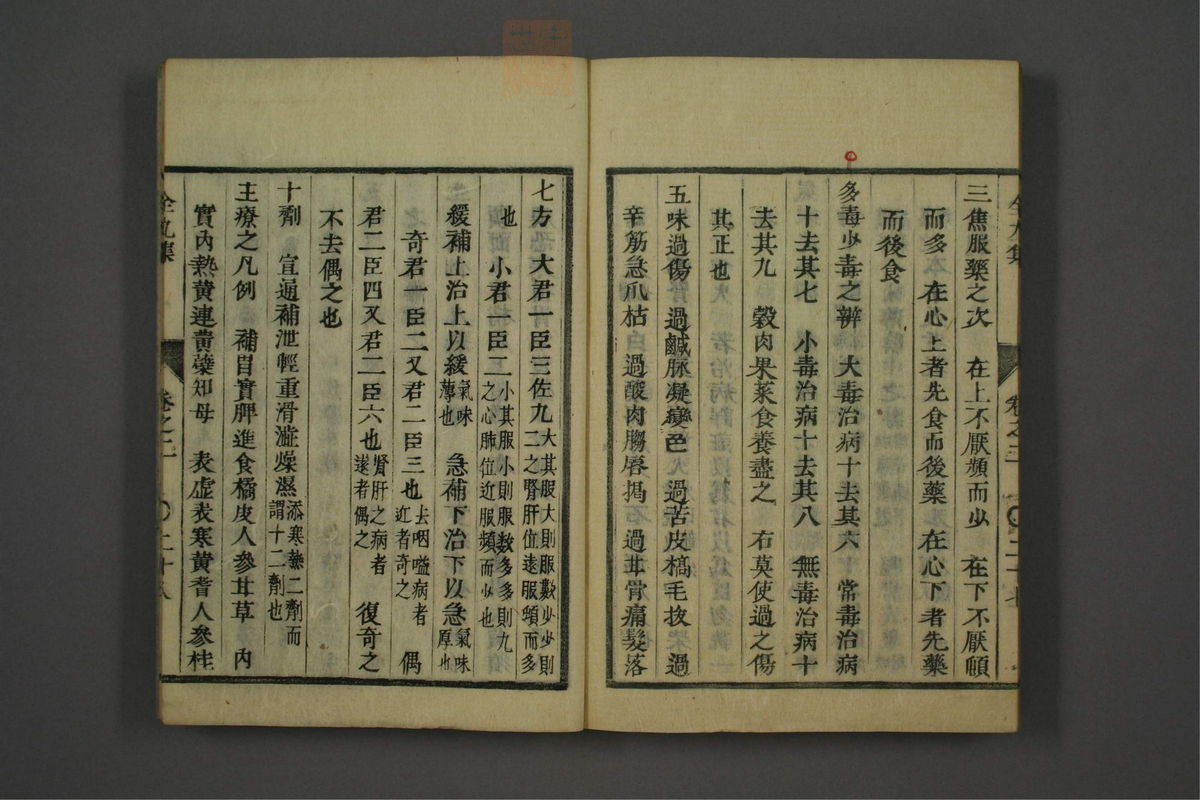 三焦服藥之次　在上不厭頻而少　在下不厭頓
而多　在心上者先食而後藥　在心下者先藥
而後食
多毒少毒之辨　大毒治病十去其六　常毒治病
十去其七　小毒治病十去其八　無毒治病十
去其九　穀肉果菜食養盡之　右莫使過之傷
其正也
五味過傷　過鹹脉凝變色　過苦皮槁毛拔　過
辛筋急爪枯　過酸肉䐢唇揭　過甘骨痛髮落
全九集　卷之二　二十七
七方　大君一臣三佐九大其服大則服數少少則二之腎肝位遠服頓而多
也　小君一臣二小其服小則服数多多則九之心肺位近服頻而少也
緩補上治上以緩氣味薄也　急補下治下以急氣味厚也
奇君一臣二又君二臣三也去咽嗌病者近者奇之　偶
君二臣四又君二臣六也腎肝之病者遠者偶之　復奇之
不去偶之也
十劑　宣通補泄輕重滑澁燥濕添寒熱二劑而謂十二劑也
主療之凡例　補胃實脾進食橘皮人參甘草　內
實內熱黄連黄蘗知母　表虛表寒黄耆人參桂
全九集　卷之二　二十八